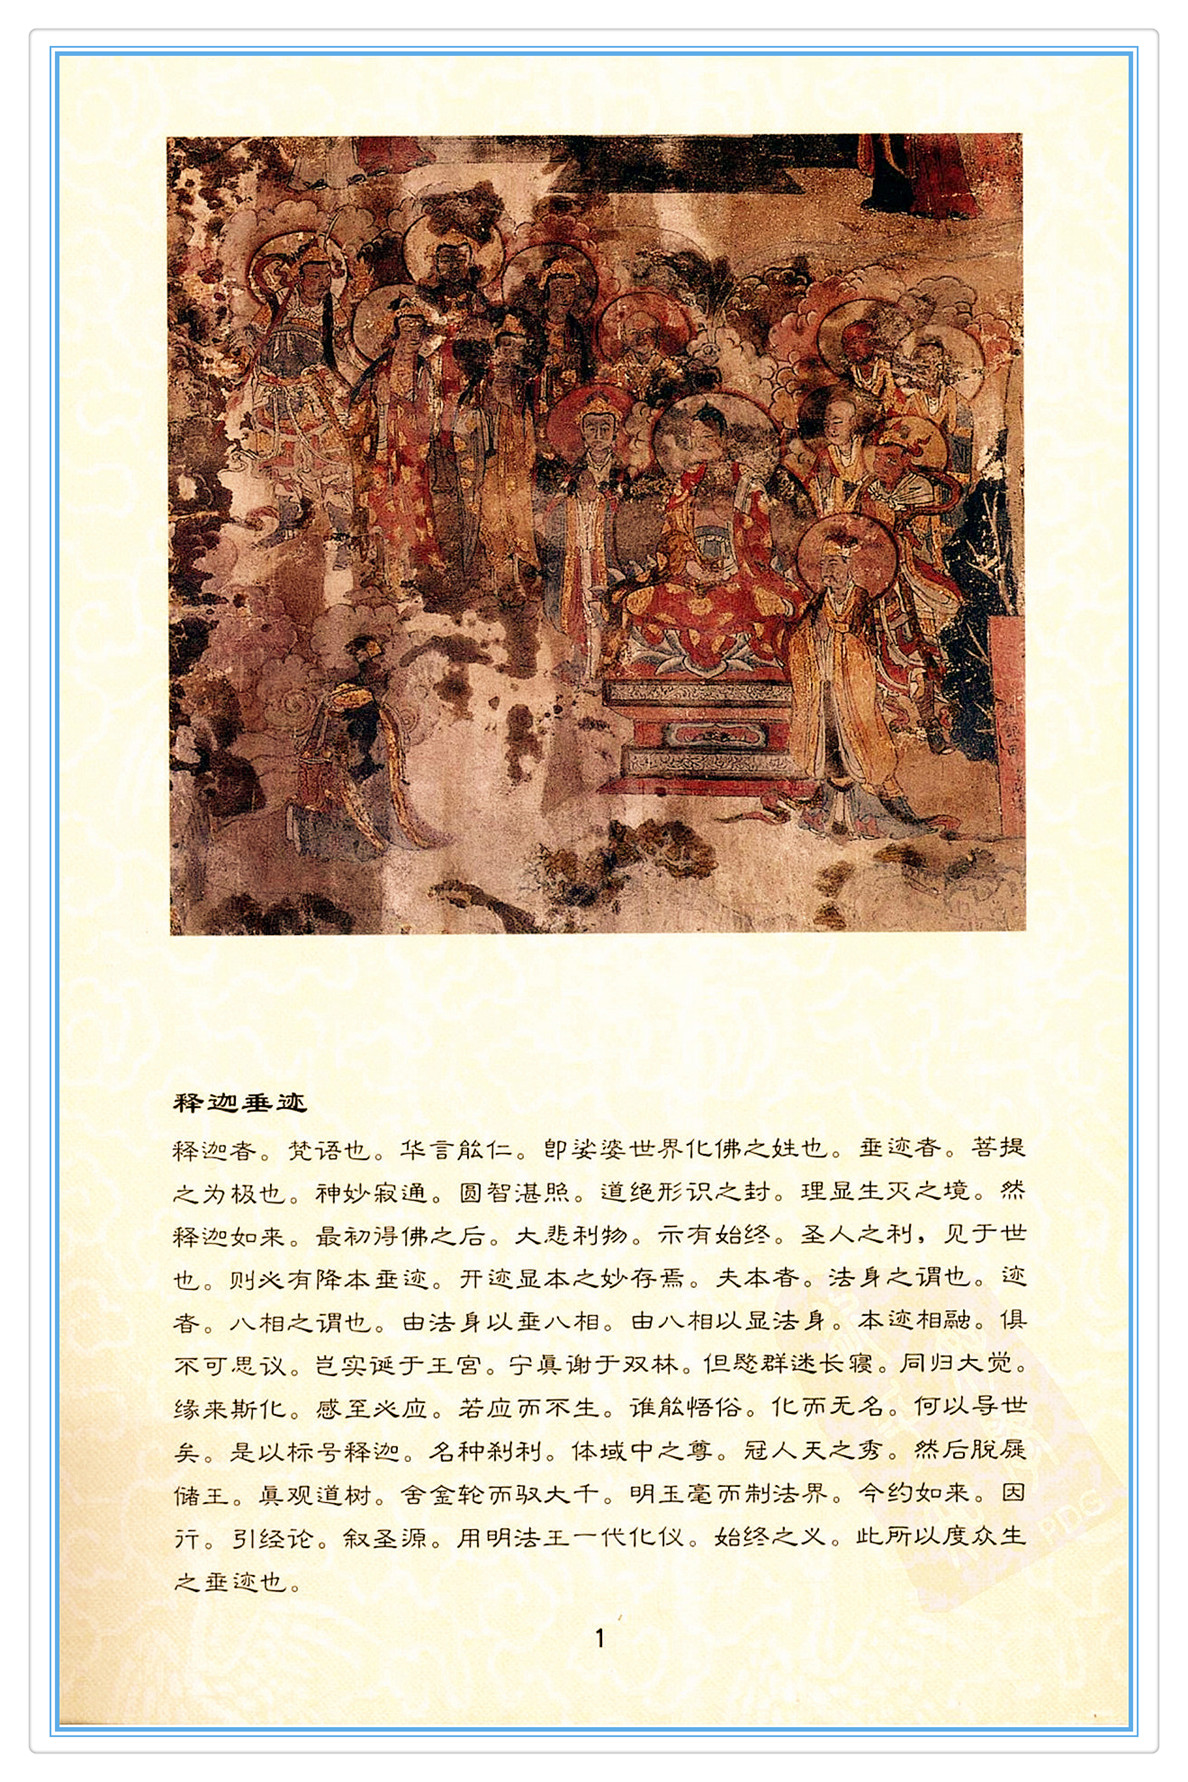 释迦垂迹
释迦者。梵语也。华言能仁。即娑婆世界化佛之姓也。垂迹者。菩提
之为极也。神妙寂通。圆智湛照。道绝形识之封。理显生灭之境。然
释迦如来。最初得佛之后。大悲利物。示有始终。圣人之利，见于世
也。则必有降本垂迹。开迹显本之妙存焉。夫本者。法身之谓也。迹
者。八相之谓也。由法身以垂八相。由八相以显法身。本迹相融。俱
不可思议。岂实诞于王宫。宁真谢于双林。但愍群迷长寝。同归大觉。
缘来斯化。感至必应。若应而不生。谁能悟俗。化而无名。何以导世
矣。是以标号释迦。名种刹利。体域中之尊。冠人天之秀。然后脱屣
储王。真观道树。舍金轮而驭大千。明玉毫而制法界。今约如来。因
行。引经论。叙圣源。用明法王一代化仪。始终之义。此所以度众生
之垂迹也。
1
PDG